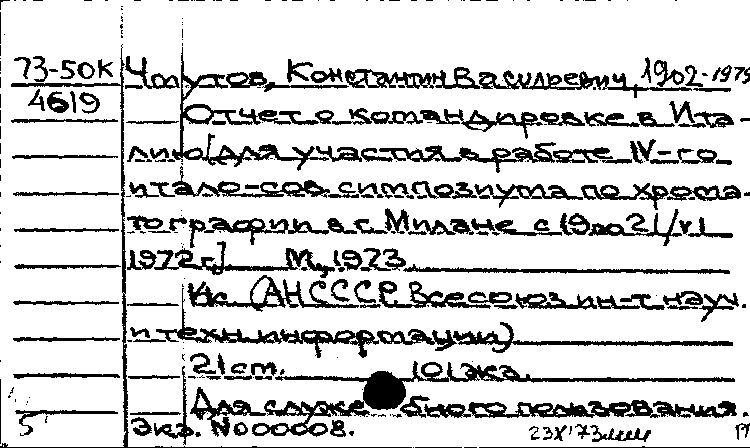 73-50К Чмутов, Константин Васильевич, 1902-1979
4619 Отчет о командировке в Ита-
лию [для участия в работе IV-го
итало-сов. симпозиума по хрома-
тографии в г. Милане с 19 по 21/VI
1972 г.]. М., 1973.
(АН СССР. Всесоюз. ин-т науч.
и техн. информации)
21 cm. 101 экз.
Для служебного пользования.
5 Экз. N000008. 23X'73